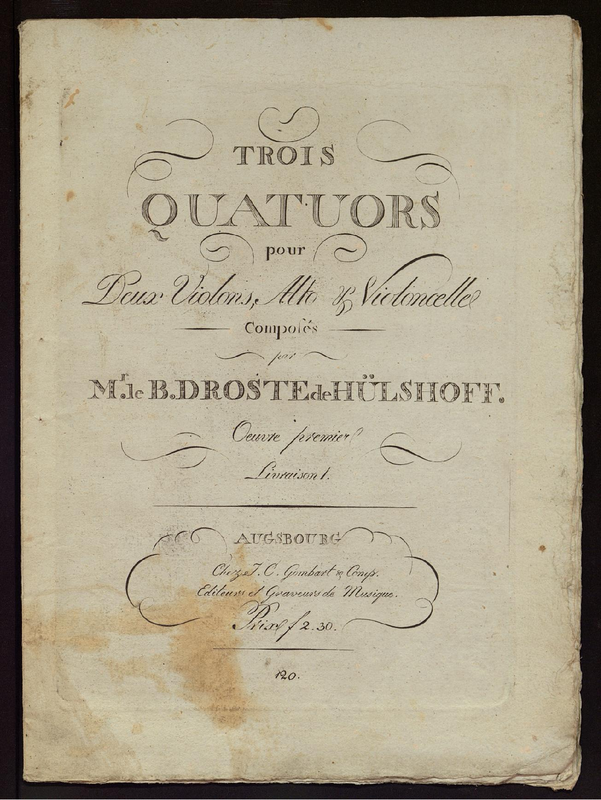 TROIS
QUATUORS
pour
Deux Violons, Alto & Violoncelle
Composés
par
M.r le B. DROSTE de HÜLSHOFF.
Oeuvre premier
Livraison 1.
AUGSBOURG
Chez J. C. Gombart & Comp.
Editeurs et Graveurs de Musique.
Prix f 2.30.
120.